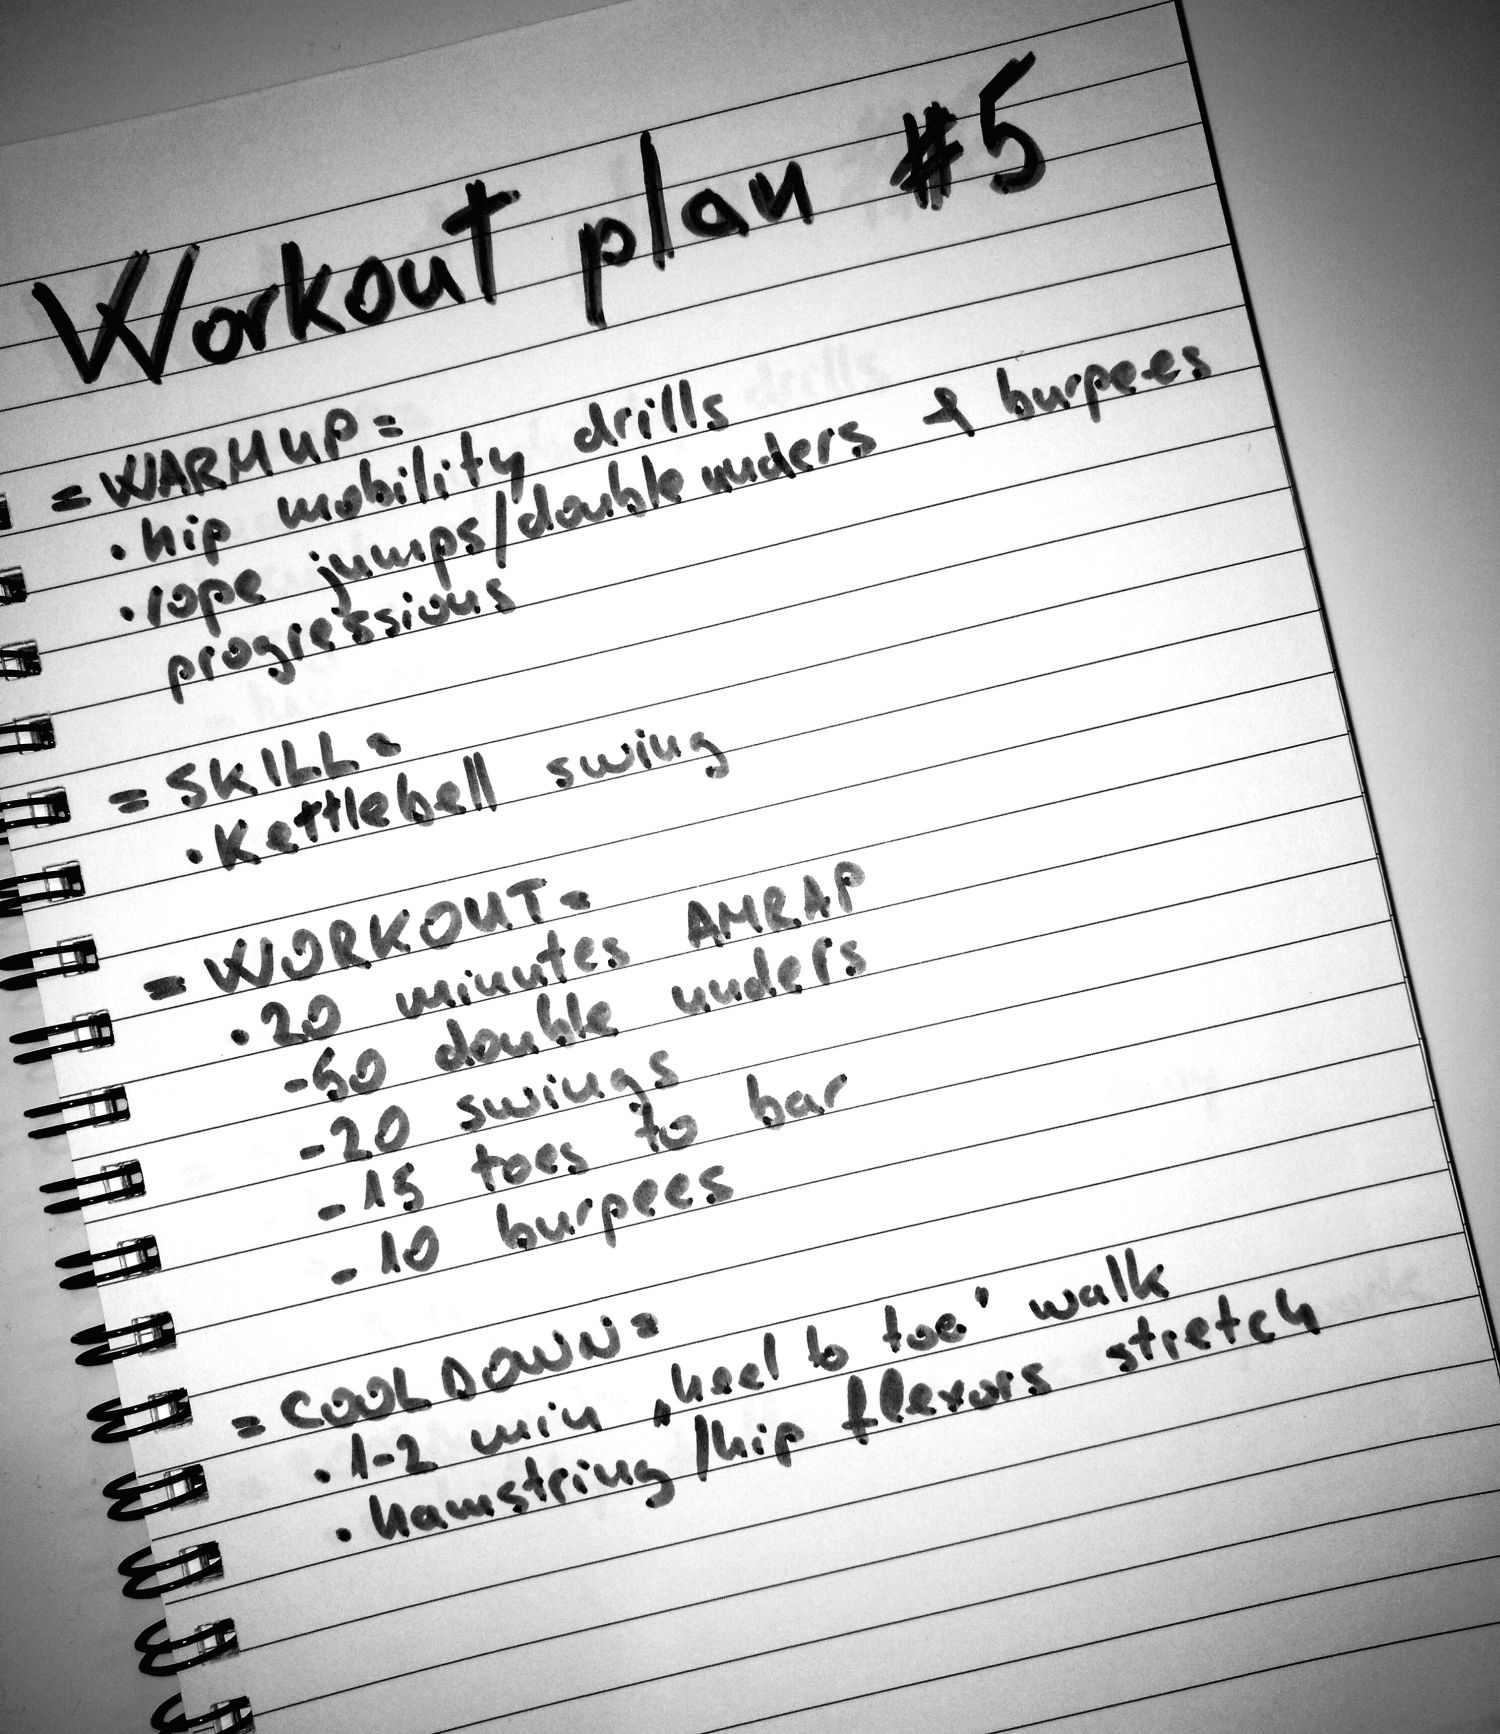 Workout plan #5
= WARM UP =
• hip mobility drills
• rope jumps/double unders & burpees
progressions
= SKILL =
• Kettlebell swing
= WORKOUT =
• 20 minutes AMRAP
- 50 double unders
- 20 swings
- 15 toes to bar
- 10 burpees
= COOL DOWN =
• 1-2 min „heel to toe" walk
• hamstring/hip flexors stretch